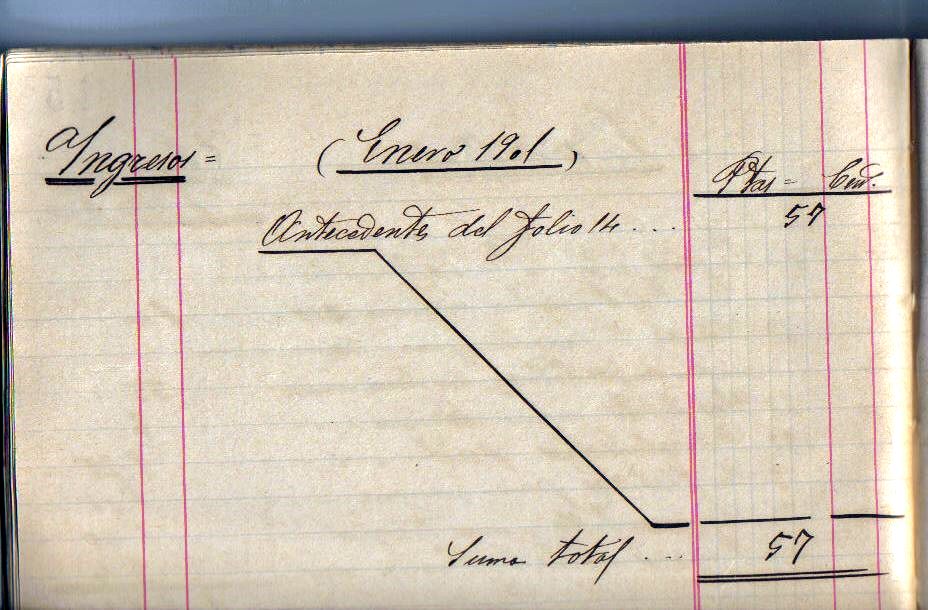 Ingresos = (Enero 1901)
Ptas = Cent.
Antecedentes del folio 14 .... 57
Suma total .... 57